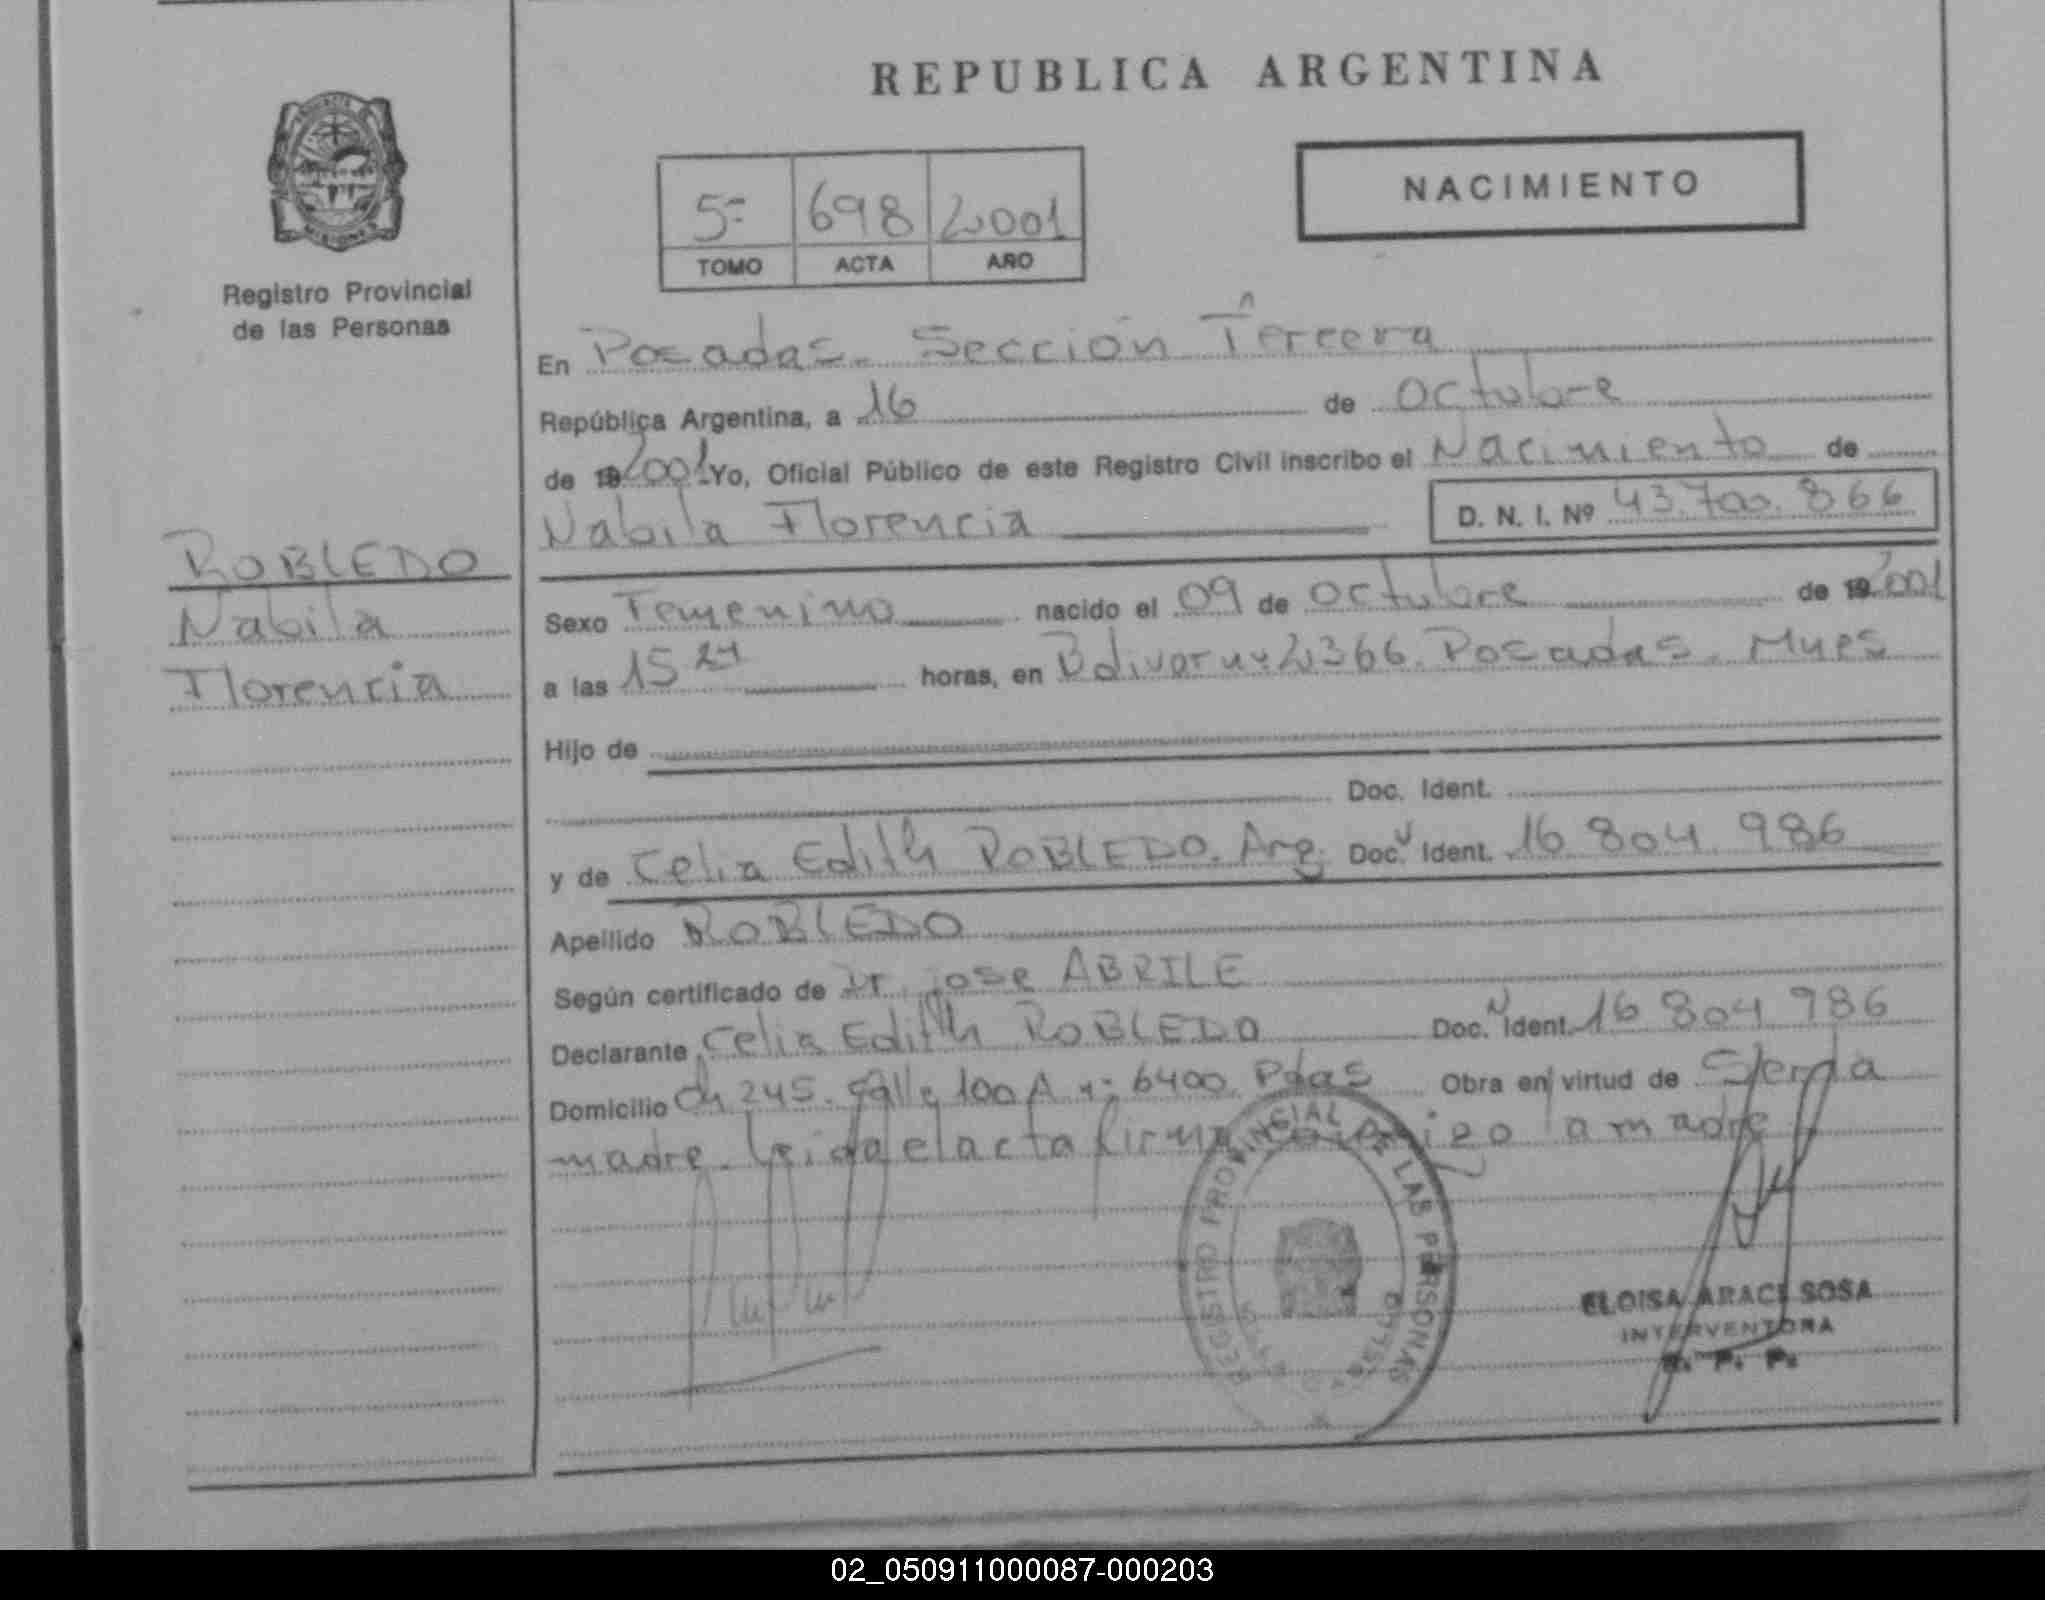 REPUBLICA ARGENTINA
NACIMIENTO
5= 698 2001
TOMO ACTA AÑO
Registro Provincial
de las Personas
En Posadas. Sección Tercera
República Argentina, a 16 de octubre
de 19 2001 Yo, Oficial Público de este Registro Civil inscribo el Nacimiento de
Nabila Florencia D. N. I. Nº 43.700.866
ROBLEDO
Nabila
Florencia
Sexo Femenino nacido el 09 de octubre de 19 2001
a las 15 21 horas, en Bolivar 2366. Posadas. Mnes
Hijo de
Doc. Ident.
y de Celia Edith ROBLEDO. Arg. Doc. Ident. 16 804 986
Apellido ROBLEDO
Según certificado de Dr. jose ABRILE
Declarante Celia Edith ROBLEDO Doc. Ident. 16 804 986
Domicilio Ch 245. calle 100 A 6400. Pdas Obra en virtud de
madre. leida el acta firma la madre
REGISTRO PROVINCIAL DE LAS PERSONAS
ELOISA ARACI SOSA
INTERVENTORA
R. P. P.
02_050911000087-000203